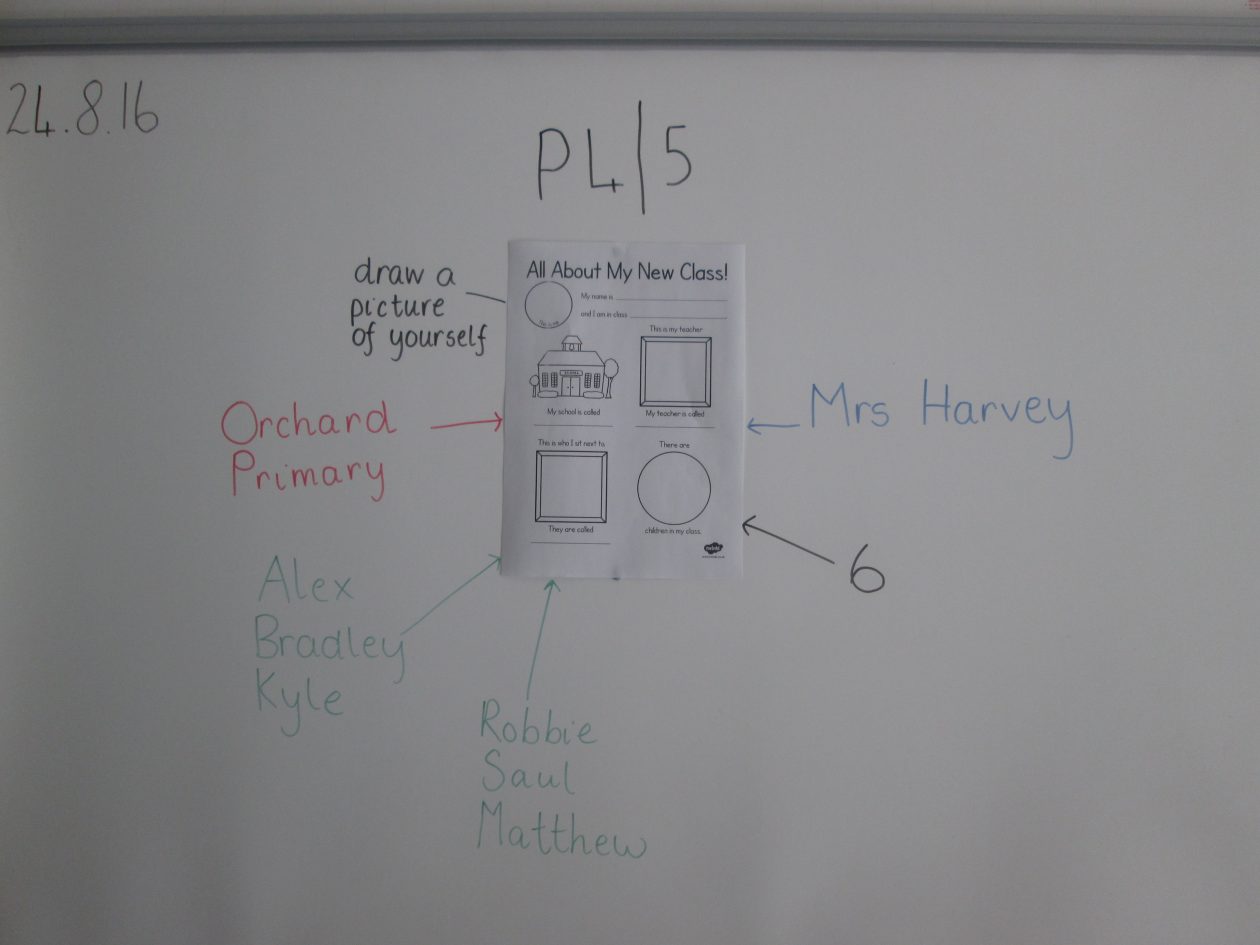 24.8.16
P4/5
draw a
picture
of yourself
All About My New Class!
My name is
and I am in class
This is me
This is my teacher
SCHOOL
My school is called
My teacher is called
Orchard
Primary
Mrs Harvey
This is who I sit next to.
There are
They are called
children in my class.
twinkl
6
Alex
Bradley
Kyle
Robbie
Saul
Matthew